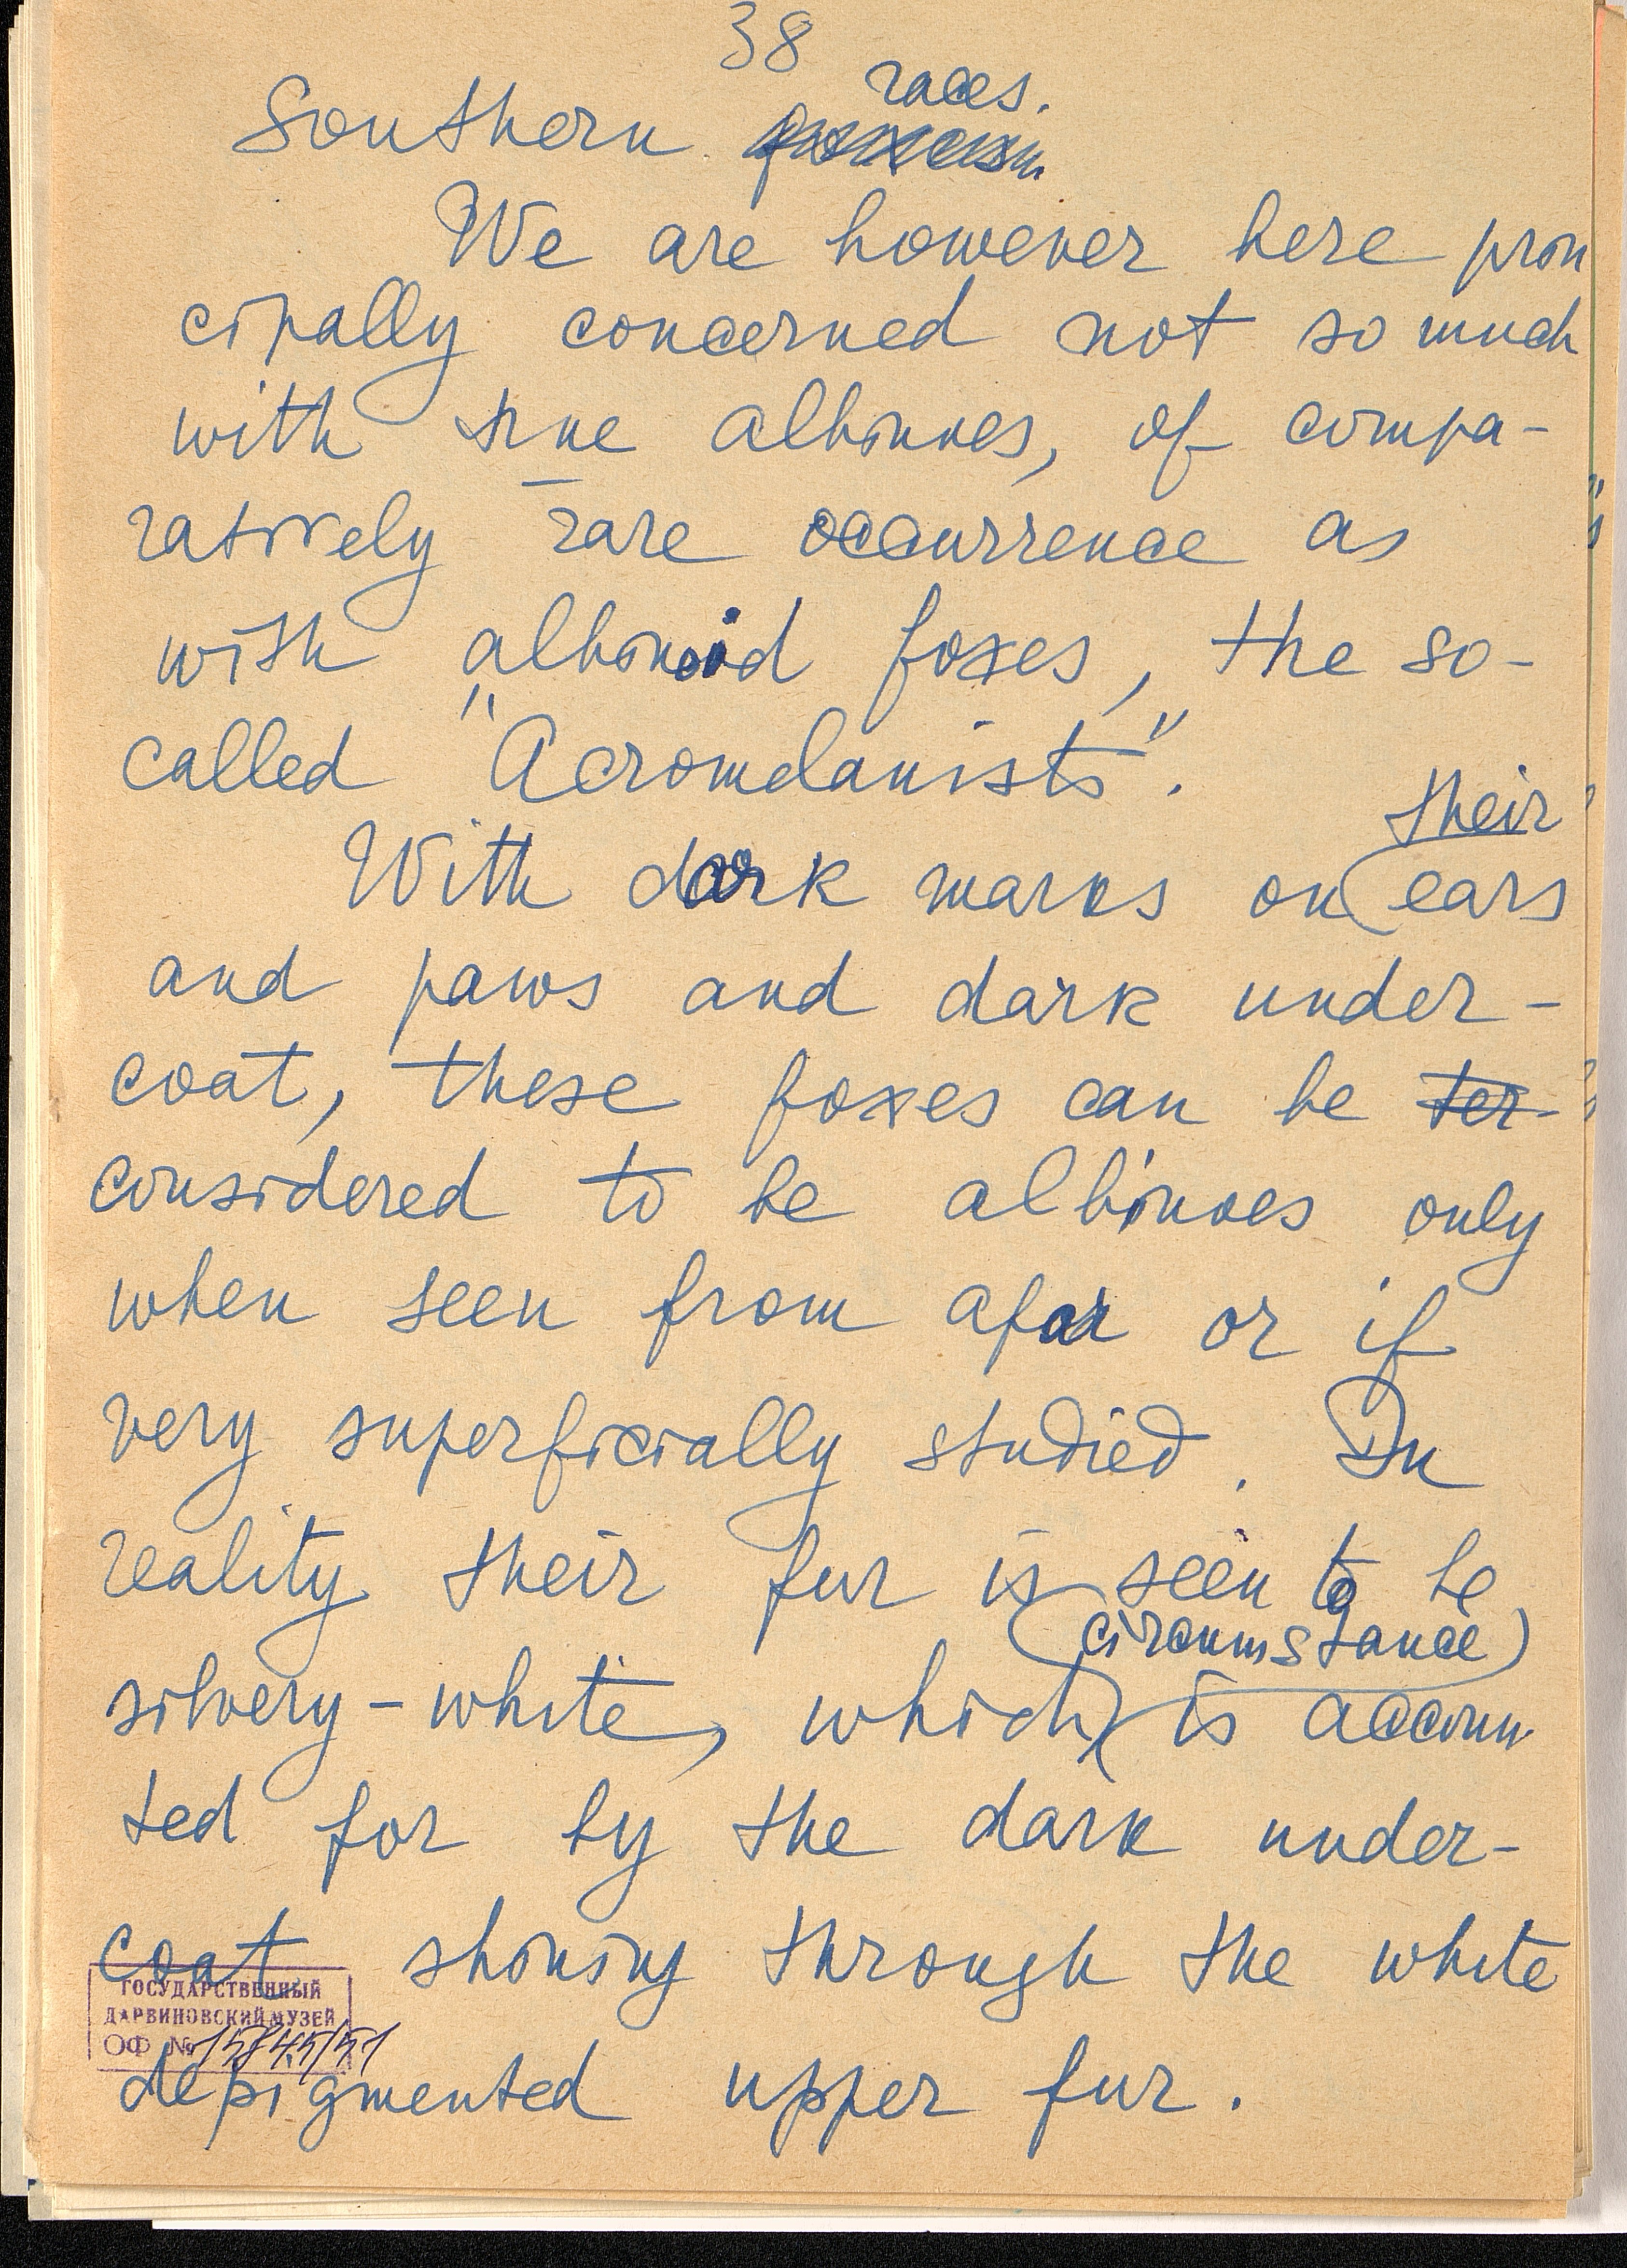 38
races.
Southern
We are however here prin
cipally concerned not so much
with true albinoes, of compa-
ratively rare occurrence as
with albinoid foxes, the so-
called "Acromelanists".
their
With dark marks on ears
and paws and dark under-
coat, these foxes can be ter-
considered to be albinoes only
when seen from afar or if
very superficially studied. In
reality their fur is seen to be
(circumstance)
silvery-white, which is accoun
ted for by the dark under-
coat shining through the white
ГОСУДАРСТВЕННЫЙ
ДАРВИНОВСКИЙ МУЗЕЙ
ОФ № 15845/51
depigmented upper fur.